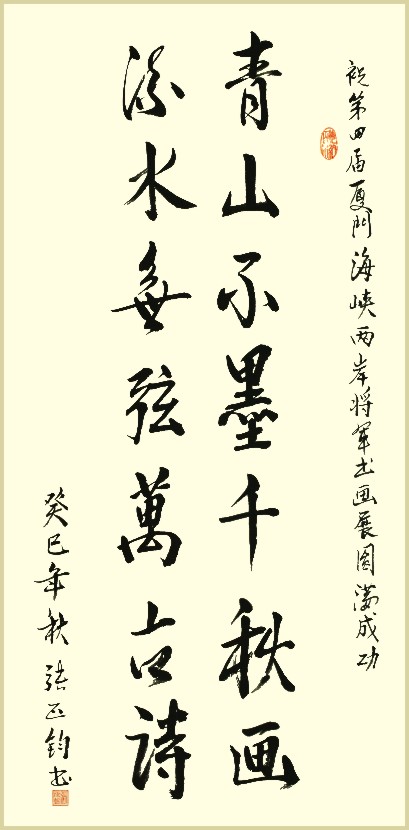 祝第四届厦门海峡两岸将军书画展圆满成功
青山不墨千秋画
流水無弦萬古詩
癸巳年秋 張正鈞书